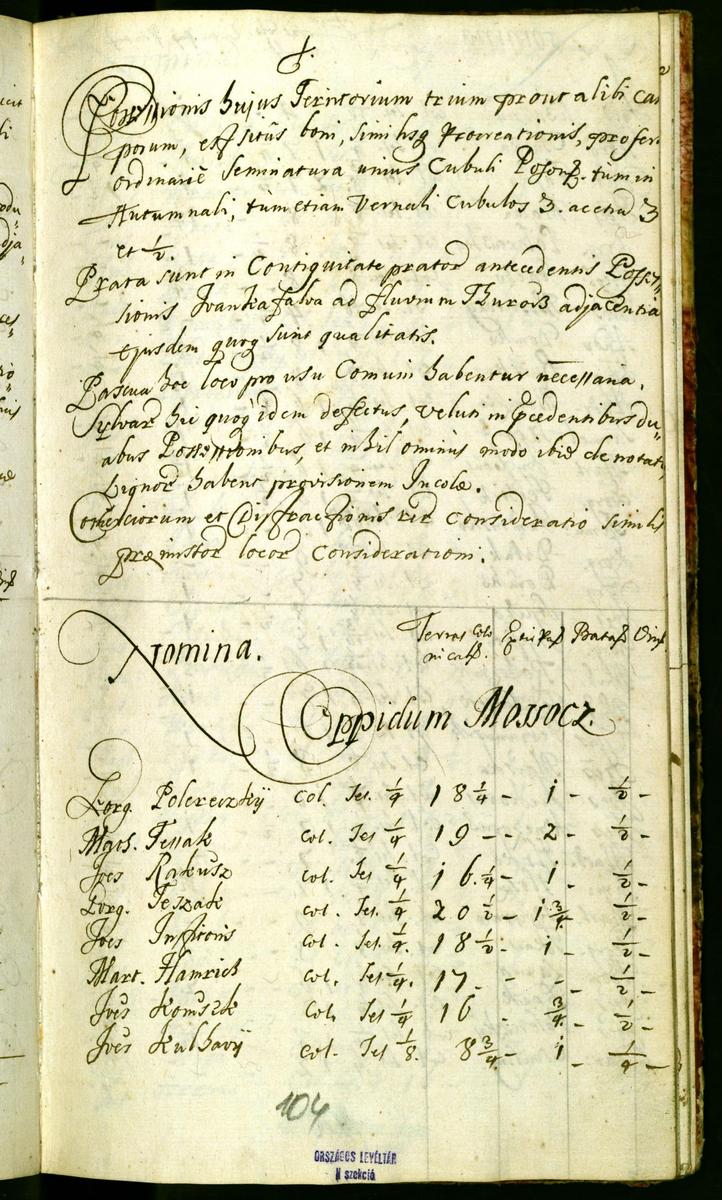 Possessionis hujus Territorium trium prout alibi cam
porum, est situs boni, similisq Procreationis, profert
ordinarie Seminatura unius Cubuli Poson. tum in
Autumnali, tum etiam Vernali Cubulos 3. ac etia 3
et 1/2.
Prata sunt in Contiguitate prator antecedentis Posses=
sionis Ivankafalva ad fluvium Thurocz adjacentia
ejusdem quoq sunt qualitatis.
Pascua hoc loco pro usu Comuni habentur necessaria.
Sylvar hic quoq idem defectus, veluti in pcedentibus du=
abus Possessionibus, et nihil ominus modo ibid denotato,
Lignor habent provisionem Incolae.
Comerciorum et Distractionis est consideratio similis
praemissor locor Considerationi.
Nomina. Terras Colo Extir Pos Prata Vin
nical.
Oppidum Mossocz.
Georg. Polereczkij Col. Ses. 1/4 18 3/4 - 1 - 1/2 -
Mgos. Tessak col. Ses 1/4 19 - - 2 - 1/2 -
Joes Rakusz col. Ses 1/4 16. 1/4 - 1 - 1/2 -
Georg. Teszak col. Ses. 1/4 20 1/2 - 1 3/4 - 1/2 -
Joes Institoris col. Ses. 1/4. 18 1/2 - 1 - 1/2 -
Mart. Hamrich col. Ses 1/4. 17 - - - 1/2 -
Joes Komuszk Col. Ses 1/4 16 - 3/4 - 1/2 -
Joes Kulhavij col. Ses 1/8. 8 3/4 - 1 - 1/4 -
104
ORSZÁGOS LEVÉLTÁR
N szekció